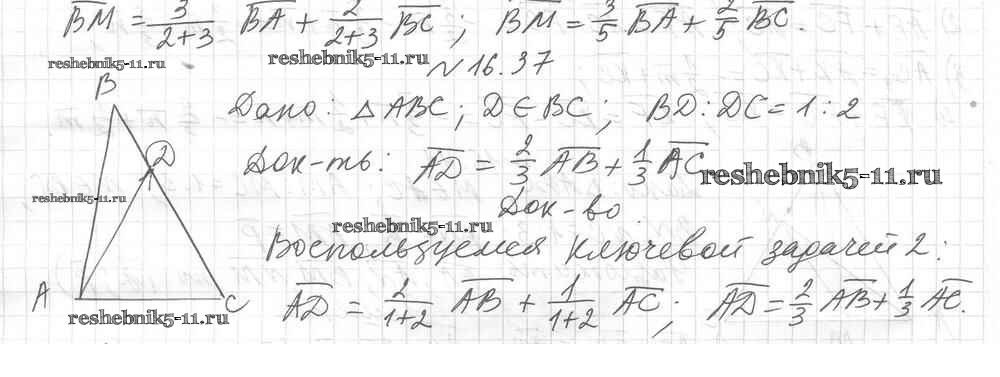 BM = 3/(2+3) BA + 2/(2+3) BC; BM = 3/5 BA + 2/5 BC.
reshebnik5-11.ru reshebnik5-11.ru
№16.37
B
Дано: △ABC; D∈BC; BD:DC=1:2
D
Док-ть: AD = 2/3 AB + 1/3 AC
reshebnik5-11.ru
reshebnik5-11.ru
Док-во.
reshebnik5-11.ru
Воспользуемся ключевой задачей 2:
A C
AD = 2/(1+2) AB + 1/(1+2) AC; AD = 2/3 AB + 1/3 AC.
reshebnik5-11.ru